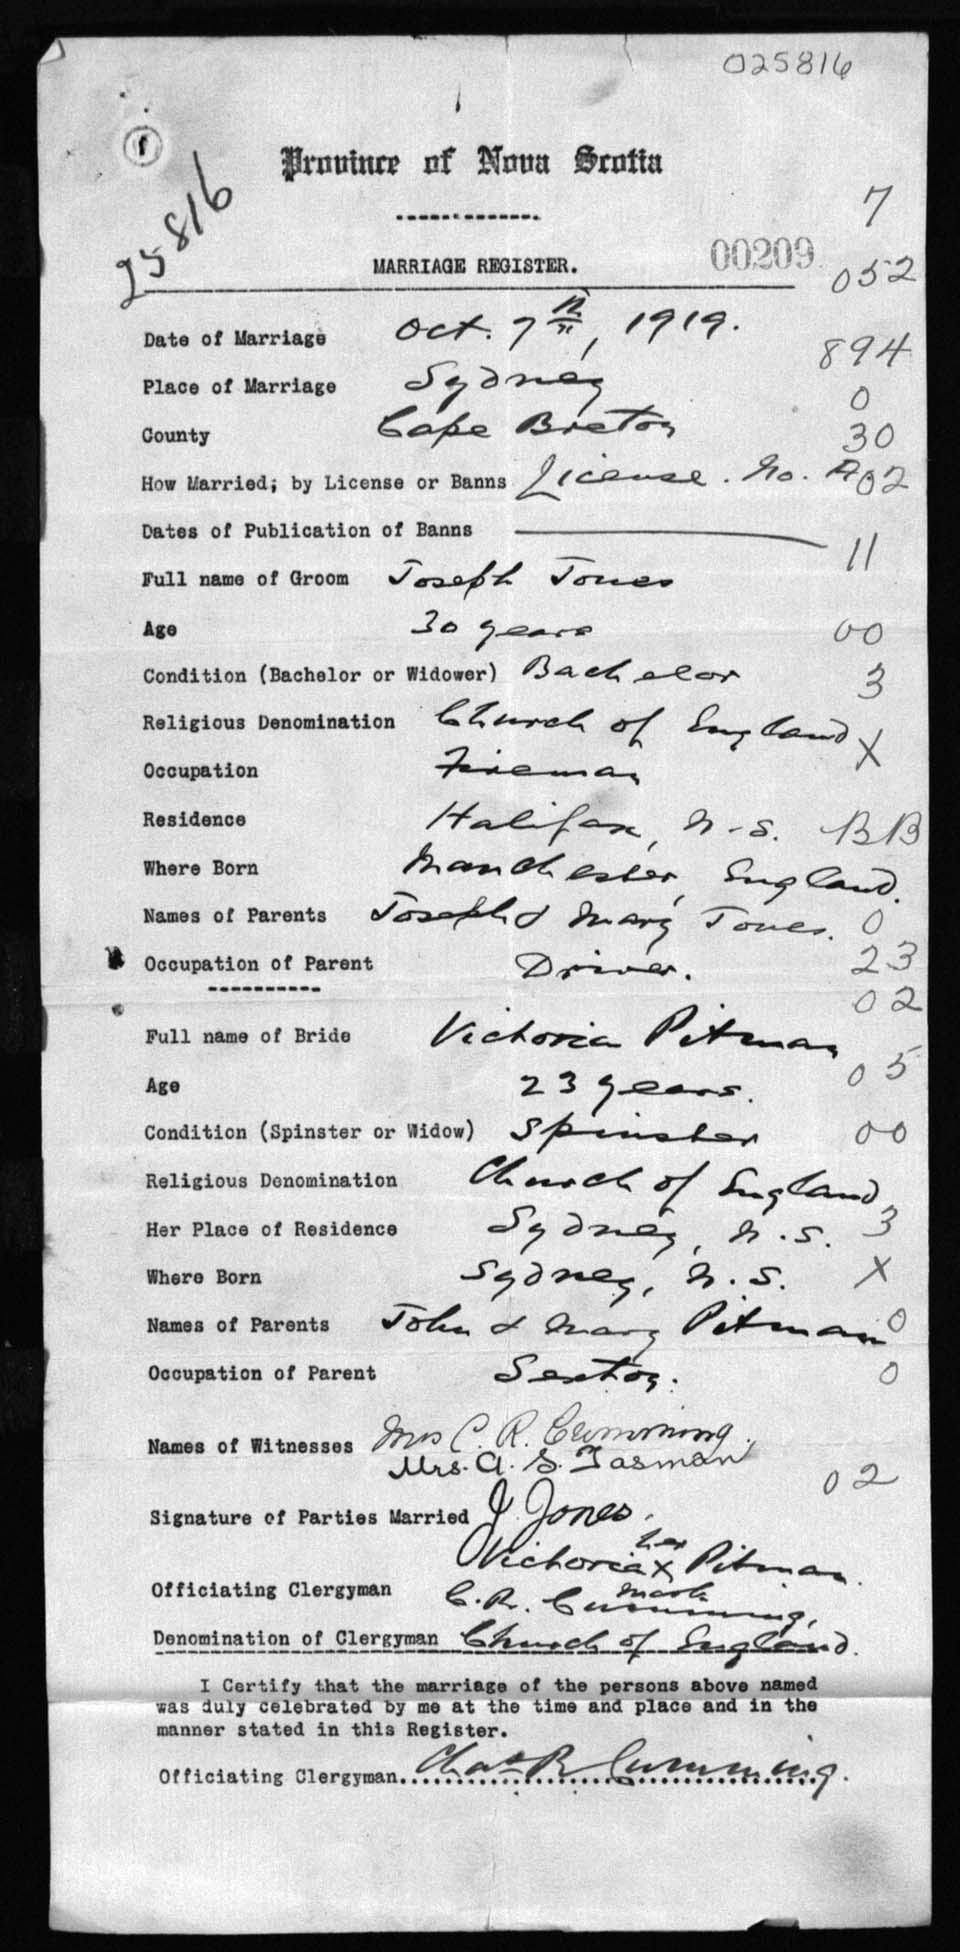 025816
Province of Nova Scotia
25816
7
MARRIAGE REGISTER. 00209
052
Date of Marriage Oct. 7th, 1919.
894
Place of Marriage Sydney
0
County Cape Breton
30
How Married; by License or Banns License. No. A
02
Dates of Publication of Banns
11
Full name of Groom Joseph Jones
Age 30 years 00
Condition (Bachelor or Widower) Bachelor 3
Religious Denomination Church of England X
Occupation Fireman
Residence Halifax, N.S. BB
Where Born Manchester, England.
Names of Parents Joseph & Mary Jones. 0
Occupation of Parent Driver. 23
02
Full name of Bride Victoria Pitman
05
Age 23 years.
Condition (Spinster or Widow) Spinster 00
Religious Denomination Church of England
Her Place of Residence Sydney, N.S. 3
Where Born Sydney, N.S. X
Names of Parents John & Mary Pitman 0
Occupation of Parent Sexton. 0
Names of Witnesses Mrs C. R. Cumming.
Mrs. A. S. Tasman
02
Signature of Parties Married J. Jones.
her
Victoria X Pitman.
mark
Officiating Clergyman C. R. Cumming,
Denomination of Clergyman Church of England.
I Certify that the marriage of the persons above named
was duly celebrated by me at the time and place and in the
manner stated in this Register.
Officiating Clergyman Chas R Cumming.